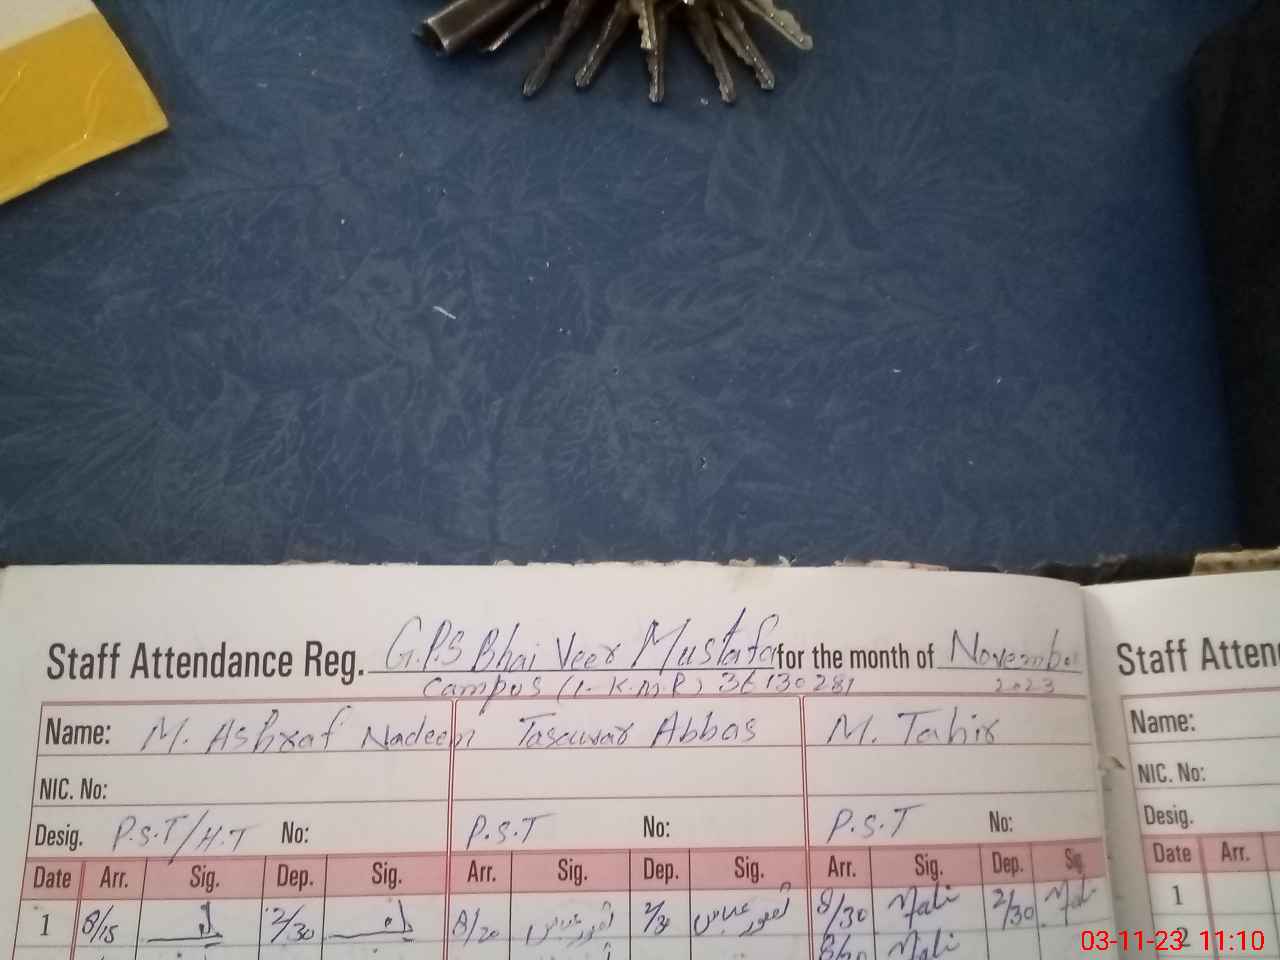 Staff Attendance Reg. G.P.S Bhai Veer Mustafa for the month of November
Campus (1-K.M.R) 36130281 2023
Name: M. Ashraf Nadeem Tasawar Abbas M. Tahir
NIC. No:
Desig. P.S.T/H.T No: P.S.T No: P.S.T No:
Date Arr. Sig. Dep. Sig. Arr. Sig. Dep. Sig. Arr. Sig. Dep. Sig.
1 8/15 2/30 8/20 تصور عباس 2/30 تصور عباس 8/30 2/30
8/30
Staff Atten
Name:
NIC. No:
Desig.
Date Arr.
1
2
03-11-23 11:10